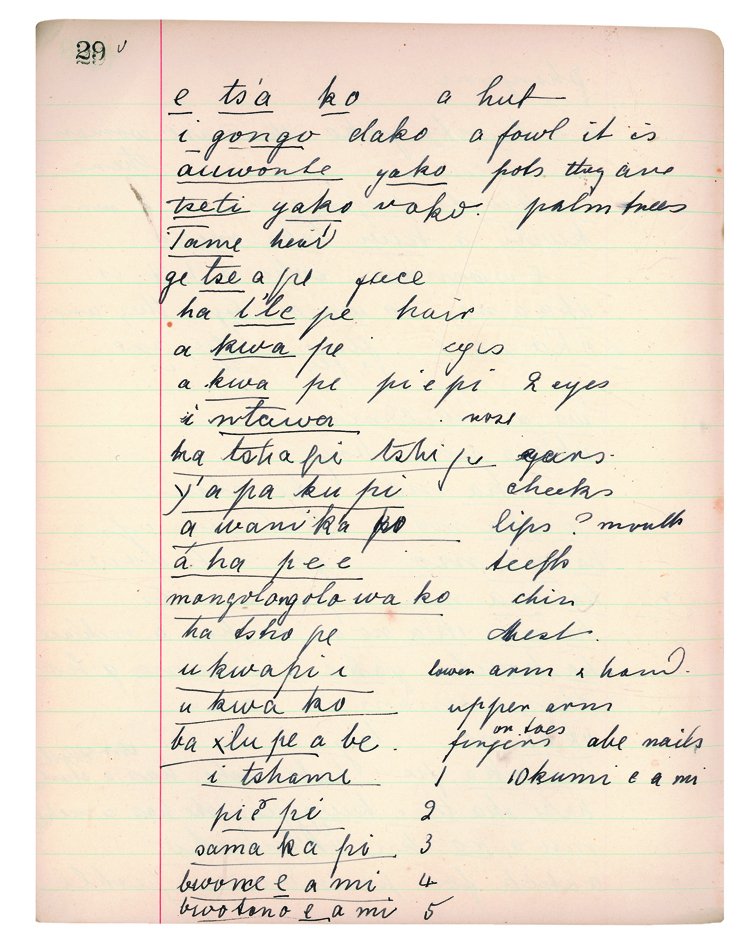 29 v
e ts'a ko a hut
i gongo dako a fowl it is
auwonte yako pots they are
tseti yako vako. palm trees
Tame head
ge tse a pe face
ha l'le pe hair
a kwa pe eyes
a kwa pe pi e pi 2 eyes
i ntawa nose
ha tshapi tshi pe ears.
y'a pa ku pi cheeks
a wani'ka ko lips ? mouth
á ha pee teeth
mongolongolo wa ko chin
ha tsho pe chest.
u kwapi i lower arm & hand.
u kwa ko upper arm
or toes
ba xlu pe a be. fingers abe nails
i tshame 1 10 kumi e a mi
pie pi 2
sama ka pi 3
bwonce e a mi 4
bwotano e a mi 5